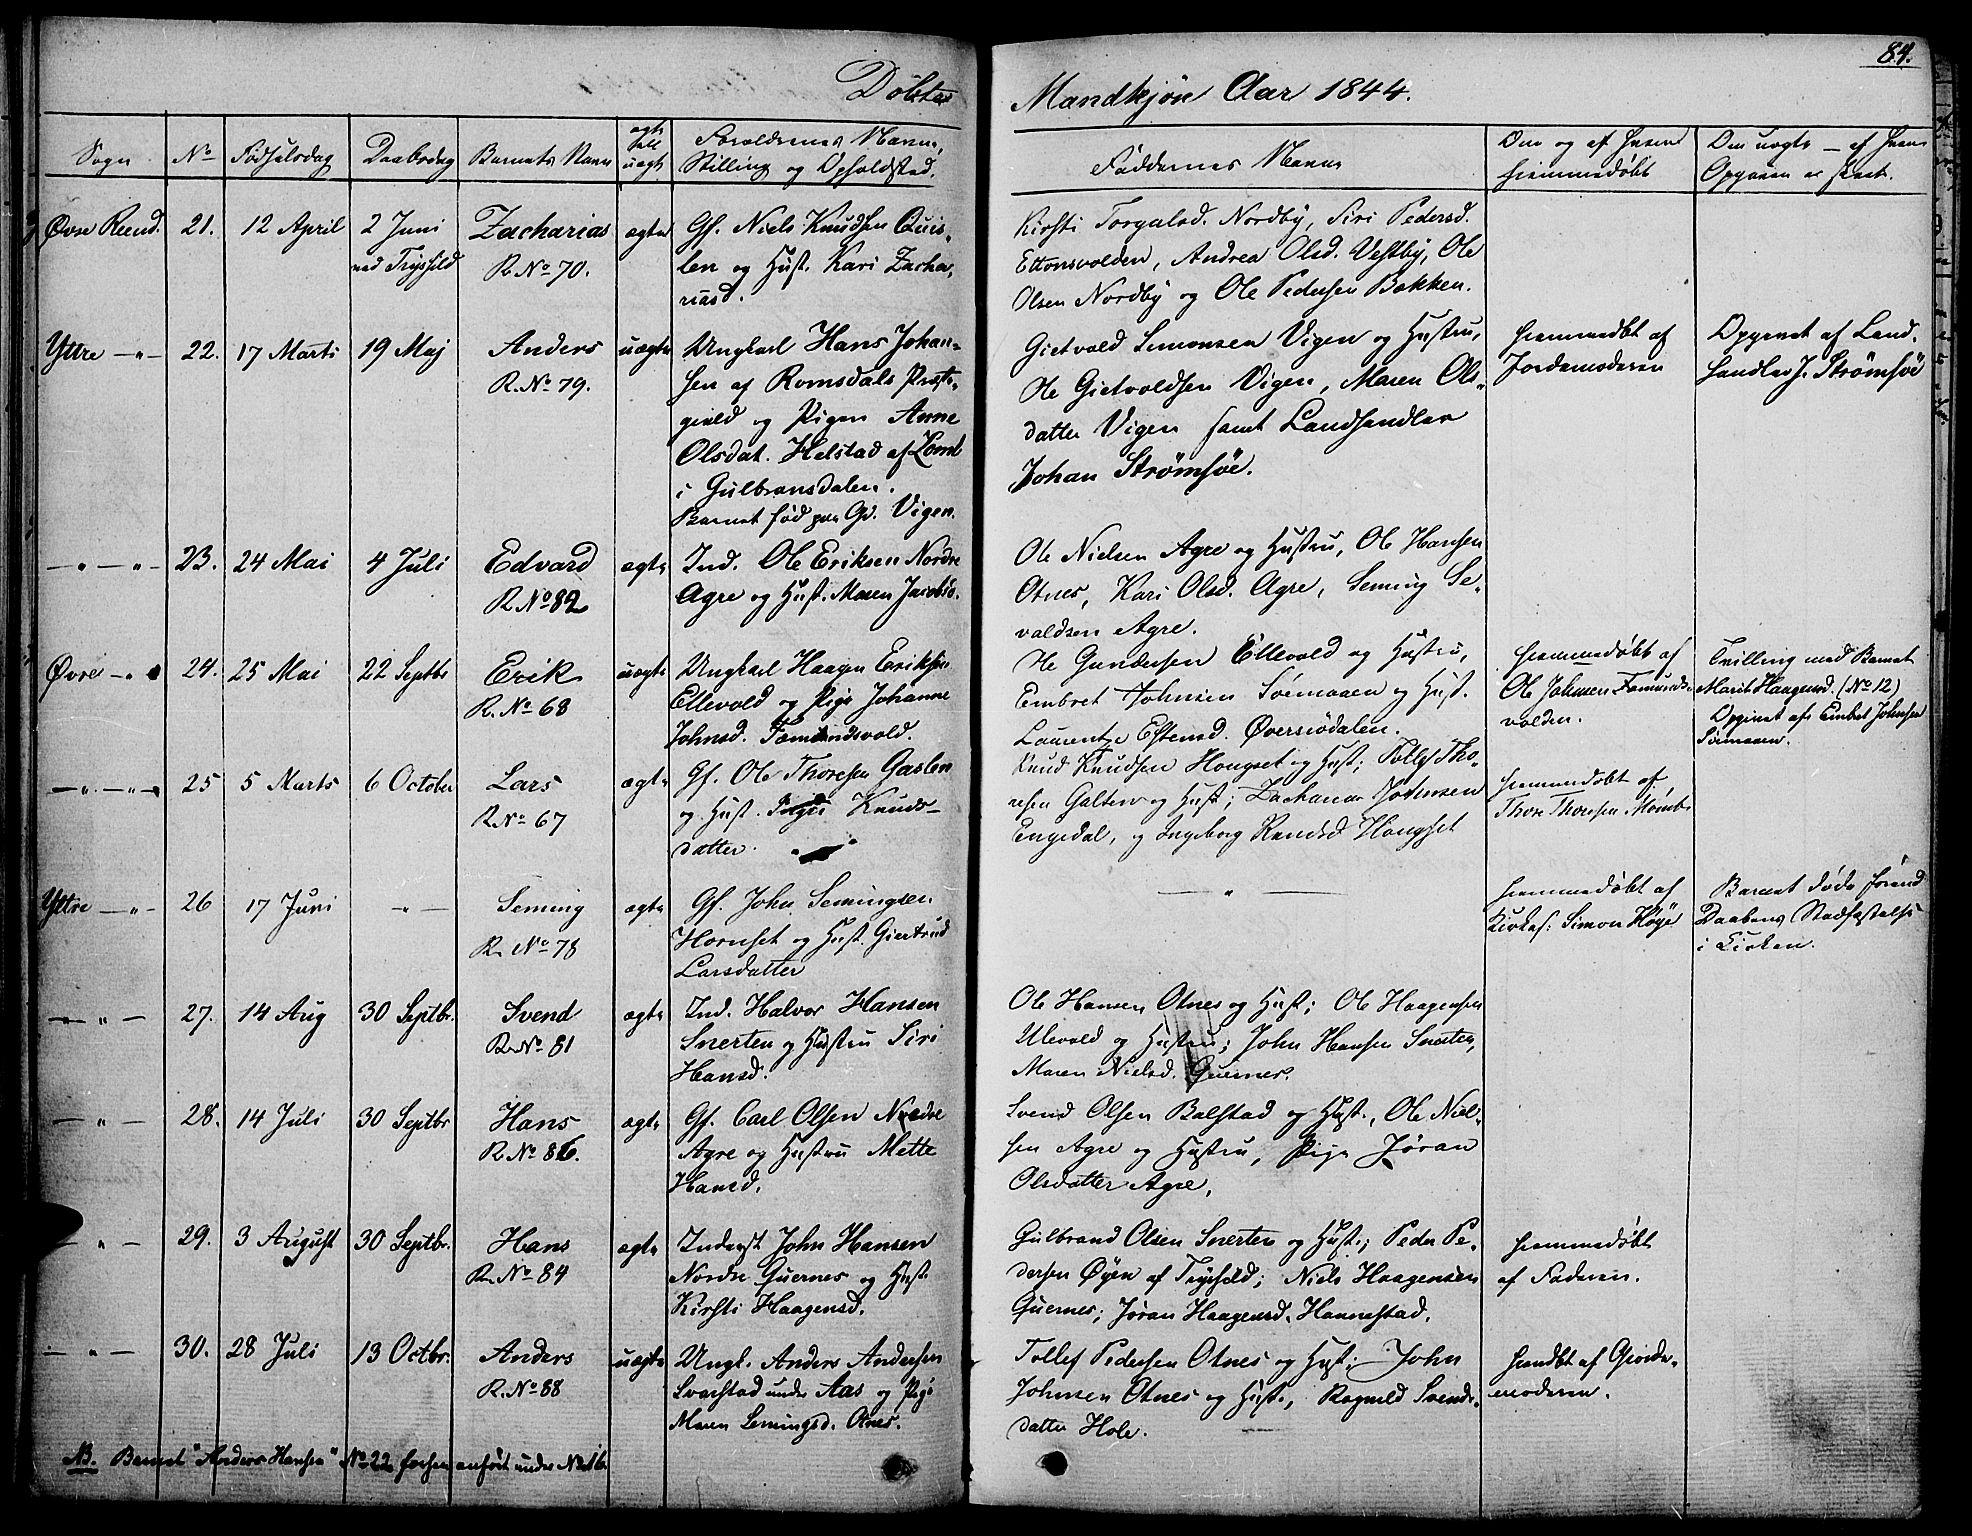 84.
Døbte Mandkjøn Aar 1844.
Sogn No Fødselsdag Daabsdag Barnets Navn ægte eller uægte Forældrenes Navne, Stilling og Opholdsted. Faddernes Navne Om og af hvem hjemmedøbt Om uægte — af hvem Opgaven er skeet.
Øvre Rend. 21. 12 April 2 Juni
ved Trysild
Zacharias
R No 70.
ægte
Gf. Niels Knudsen Quis-
len og Hust. Kari Zacha-
riasd.
Kirsti Torgalsd. Nordby, Siri Pedersd.
Ettonsvolden, Andrea Olsd. Vestby, Ole
Olsen Nordby og Ole Pedersen Bakken.
Yttre —"— 22. 17 Marts 19 Maj
Anders
R. No 79.
uægte
Ungkarl Hans Johan-
sen af Romsdals Præste-
gield og Pigen Anne
Olsdat. Helstad af Lomb
i Gulbransdalen.
Barnet fød paa Gd. Vigen.
Gietvold Simonsen Vigen og Hustru,
Ole Gietvoldsen Vigen, Maren Ols-
datter Vigen samt Landhandler
Johan Strømsøe.
hjemmedøbt af
Jordemoderen
Opgivet af Land-
handler J. Strømsöe
—"—"— 23. 24 Mai 4 Juli
Edvard
R. No 82
ægte
Ind. Ole Eriksen Nordre
Agre og Hust. Maren Jacobsd.
Ole Nielsen Agre og Hustru, Ole Hansen
Otnes, Kari Olsd. Agre, Seming Se-
valdsen Agre.
Øvre —"— 24. 25 Mai 22 Septbr
Erik
R. No 68
uægte
Ungkarl Haagen Eriksen
Ellevold og Pige Johanne
Johnsd. Fæmundsvold.
Ole Gundersen Ellevold og Hustru,
Embret Johnsen Sømoaen og Hust.
Laurentze Estensd. Øversiødalen.
hjemmedøbt af
Ole Johnsen Fæmunds-
volden.
Tvilling med Barnet
Marit Haagensd. (No 12)
Opgivet af Embret Johnsen
Sömoaen.
—"—"— 25 5 Marts 6 October
Lars
R No 67
ægte
Gf. Ole Thoresen Gaslen
og Hust. Knuds-
datter.
Knud Knudsen Hongset og Hust; Tollef Tho-
resen Galten og Hust; Zacharias Johnsen
Engedal, og Ingeborg Hongset
hjemmedøbt af
Thore Thoresen
Yttre —"— 26 17 Juni —"—
Seming
R. No 78
ægte
Gf. John Semingsen
Hornset og Hust. Giertrud
Larsdatter
—"—
hjemmedøbt af
Kirkes: Simon Høye
Barnet døde førend
Daabens Stadfæstelse
i Kirken.
—"— 27. 14 Aug 30 Septbr.
Svend
R. No 81
ægte
Ind. Halvor Hansen
Snerten og Hustru Siri
Hansd.
Ole Hansen Otnes og Hust; Ole Haagensen
Ulevold og Hustru; John Hansen Snerten,
Maren Nielsd. Quernes.
—"— 28. 14 Juli 30 Septbr
Hans
R No 86.
ægte
Gf. Carl Olsen Nordre
Agre og Hustru Mette
Hansd.
Svend Olsen Bolstad og Hust., Ole Niel-
sen Agre og Hustru, Pige Jøran
Olsdatter Agre.
—"— 29. 3 August 30 Septbr.
Hans
R. No 84
ægte
Inderst John Hansen
Nordre Quernes og Hust.
Kirsti Haagensd.
Gulbrand Olsen Snerten og Hust.; Peder Pe-
dersen Øyen af Trysild; Niels Haagensen
Quernes; Jøran Haagensd. Hannestad.
hjemmedøbt
af Faderen.
—"— 30. 28 Juli 13 Octbr.
Anders
R. No 88
uægte
Ungk. Anders Andersen
Svarstad under Aas og Pige
Maren Semingsd. Otnes.
Tollef Pedersen Otnes og Hust; John
Johnsen Otnes og Hust., Ragnild Svends-
datter Hole.
hmdøbt af Giorde-
moderen.
NB. Barnet "Anders Hansen" No 22 forhen anført under No 16.